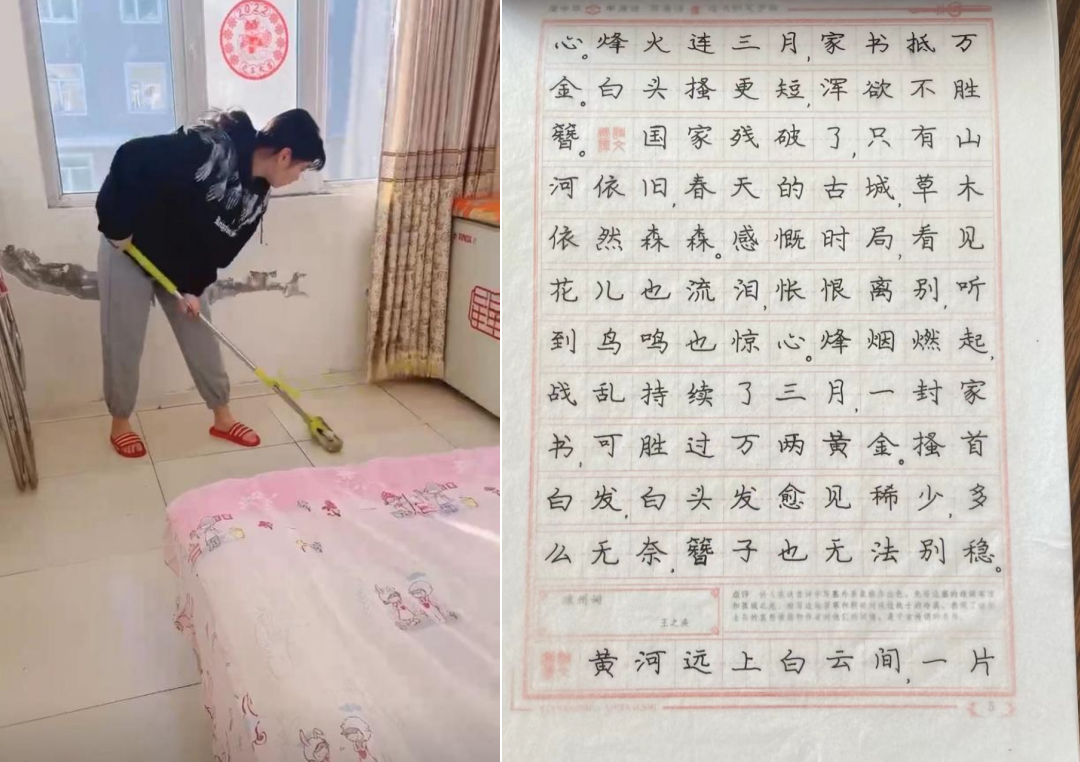 2022
心。烽火连三月,家书抵万
金。白头搔更短,浑欲不胜
簪。译文国家残破了,只有山
河依旧,春天的古城,草木
依然森森。感慨时局,看见
花儿也流泪,怅恨离别,听
到鸟鸣也惊心。烽烟燃起,
战乱持续了三月,一封家
书,可胜过万两黄金。搔首
白发,白头发愈见稀少,多
么无奈,簪子也无法别稳。
凉州词
王之涣
黄河远上白云间,一片